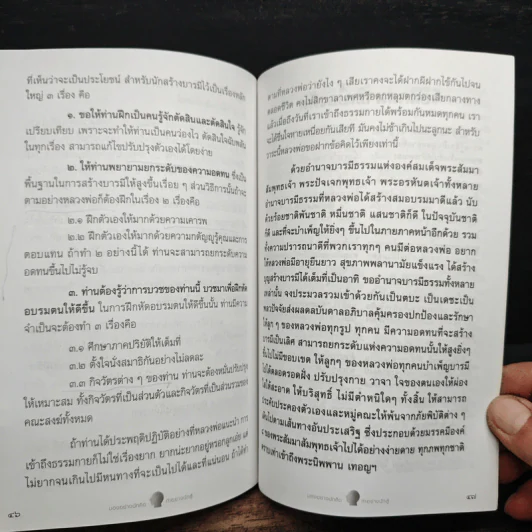 ที่เห็นว่าจะเป็นประโยชน์ สำหรับนักสร้างบารมีไว้เป็นเรื่องหลัก
ใหญ่ ๓ เรื่อง คือ
๑. ขอให้ท่านฝึกเป็นคนรู้จักตัดสินและตัดสินใจ รู้จัก
เปรียบเทียบ เพราะจะทำให้ท่านเป็นคนว่องไว ตัดสินใจฉับพลัน
ในทุกเรื่อง สามารถแก้ไขปรับปรุงตัวเองได้โดยง่าย
๒. ให้ท่านพยายามยกระดับของความอดทน ซึ่งเป็น
พื้นฐานในการสร้างบารมีให้สูงขึ้นเรื่อย ๆ ส่วนวิธีการนั้นถ้าจะ
ตามอย่างหลวงพ่อก็ต้องฝึกในเรื่อง ๒ เรื่องคือ
๒.๑ ฝึกตัวเองให้มากด้วยความเคารพ
๒.๒ ฝึกตัวเองให้มากด้วยความกตัญญูรู้คุณและการ
ตอบแทน ถ้าทำ ๒ อย่างนี้ได้ ท่านจะสามารถยกระดับความ
อดทนขึ้นไปไม่รู้จบ
๓. ท่านต้องรู้ว่าการบวชของท่านนี้ บวชมาเพื่อฝึกหัด
อบรมตนให้ดีขึ้น ในการฝึกหัดอบรมตนให้ดีขึ้นนั้น ท่านมีความ
จำเป็นจะต้องทำ ๓ เรื่องคือ
๓.๑ ศึกษาภาคปริยัติให้เต็มที่
๓.๒ ตั้งใจนั่งสมาธิกันอย่างไม่ลดละ
๓.๓ กิจวัตรต่าง ๆ ของท่าน ท่านจะต้องหมั่นปรับปรุง
ให้เหมาะสม ทั้งกิจวัตรที่เป็นส่วนตัวและกิจวัตรที่เป็นส่วนรวมของ
คณะสงฆ์ทั้งหมด
ถ้าท่านได้ประพฤติปฏิบัติอย่างที่หลวงพ่อแนะนำ การ
เข้าถึงธรรมกายก็ไม่ใช่เรื่องยาก ยากน่ะยากอยู่หรอกลูกเอ๊ย แต่
ไม่ยากจนเกินไปมีหนทางที่จะเป็นไปได้และที่แน่นอน ถ้าได้ทำ
๔๖
ตามที่หลวงพ่อว่ายังไง ๆ เสียเราคงจะได้ฝากผีฝากไข้กันไปจน
ตลอดชีวิต คงไม่สิกขาลาเพศหรือตกหลุมตกร่องเสียกลางทาง
แล้วเมื่อถึงวันที่เราเข้าถึงธรรมกายได้พร้อมกันหมดทุกคน เรา
จะได้ชื่นใจหายเหนื่อยกันเสียที มันคงไม่ช้าเกินไปนะลูกนะ สำหรับ
วาระนี้หลวงพ่อขอฝากข้อคิดไว้เพียงเท่านี้
ด้วยอำนาจบารมีธรรมแห่งองค์สมเด็จพระสัมมา
สัมพุทธเจ้า พระปัจเจกพุทธเจ้า พระอรหันตเจ้าทั้งหลาย
อำนาจบารมีธรรมที่หลวงพ่อได้สร้างสมอบรมมาดีแล้ว นับ
ด้วยร้อยชาติพันชาติ หมื่นชาติ แสนชาติก็ดี ในปัจจุบันชาติ
ก็ดี และที่จะบำเพ็ญให้ยิ่งๆ ขึ้นไปในภายภาคหน้าอีกด้วย รวม
ทั้งความปรารถนาดีที่พวกเราทุกๆ คนมีต่อหลวงพ่อ อยาก
ให้หลวงพ่อมีอายุยืนยาว สุขภาพพลานามัยแข็งแรง ได้สร้าง
บุญสร้างบารมีได้เต็มที่เป็นอาทิ ขออำนาจบารมีธรรมทั้งหลาย
เหล่านั้น จงประมวลรวมเข้าด้วยกันเป็นตบะ เป็นเดชะเป็น
พลวปัจจัยส่งผลดลบันดาลอภิบาลคุ้มครองปกป้องและรักษา
ให้ลูก ๆ ของหลวงพ่อทุกรูป ทุกคน มีความอดทนที่จะสร้าง
บารมีเป็นเลิศ สามารถยกระดับแห่งความอดทนนั้นให้สูงยิ่งๆ
ขึ้นไปไม่มีขอบเขต ให้ลูกๆ ของหลวงพ่อทุกคนบำเพ็ญบารมี
ได้ตลอดรอดฝั่ง ปรับปรุงกาย วาจา ใจของตนเองให้ผ่อง
ใสสะอาด ให้บริสุทธิ์ ไม่มีตำหนิใดๆ ทั้งสิ้น ให้สามารถ
ประคับประคองตัวเองและหมู่คณะให้พ้นจากภัยพิบัติต่าง ๆ
เดินไปตามเส้นทางอันประเสริฐ ซึ่งประกอบด้วยมรรคมีองค์
ของพระสัมมาสัมพุทธเจ้าไปได้อย่างง่ายดาย ทุกภพทุกชาติ
ตราบเท่าเข้าถึงพระนิพพาน เทอญฯ
๔๗